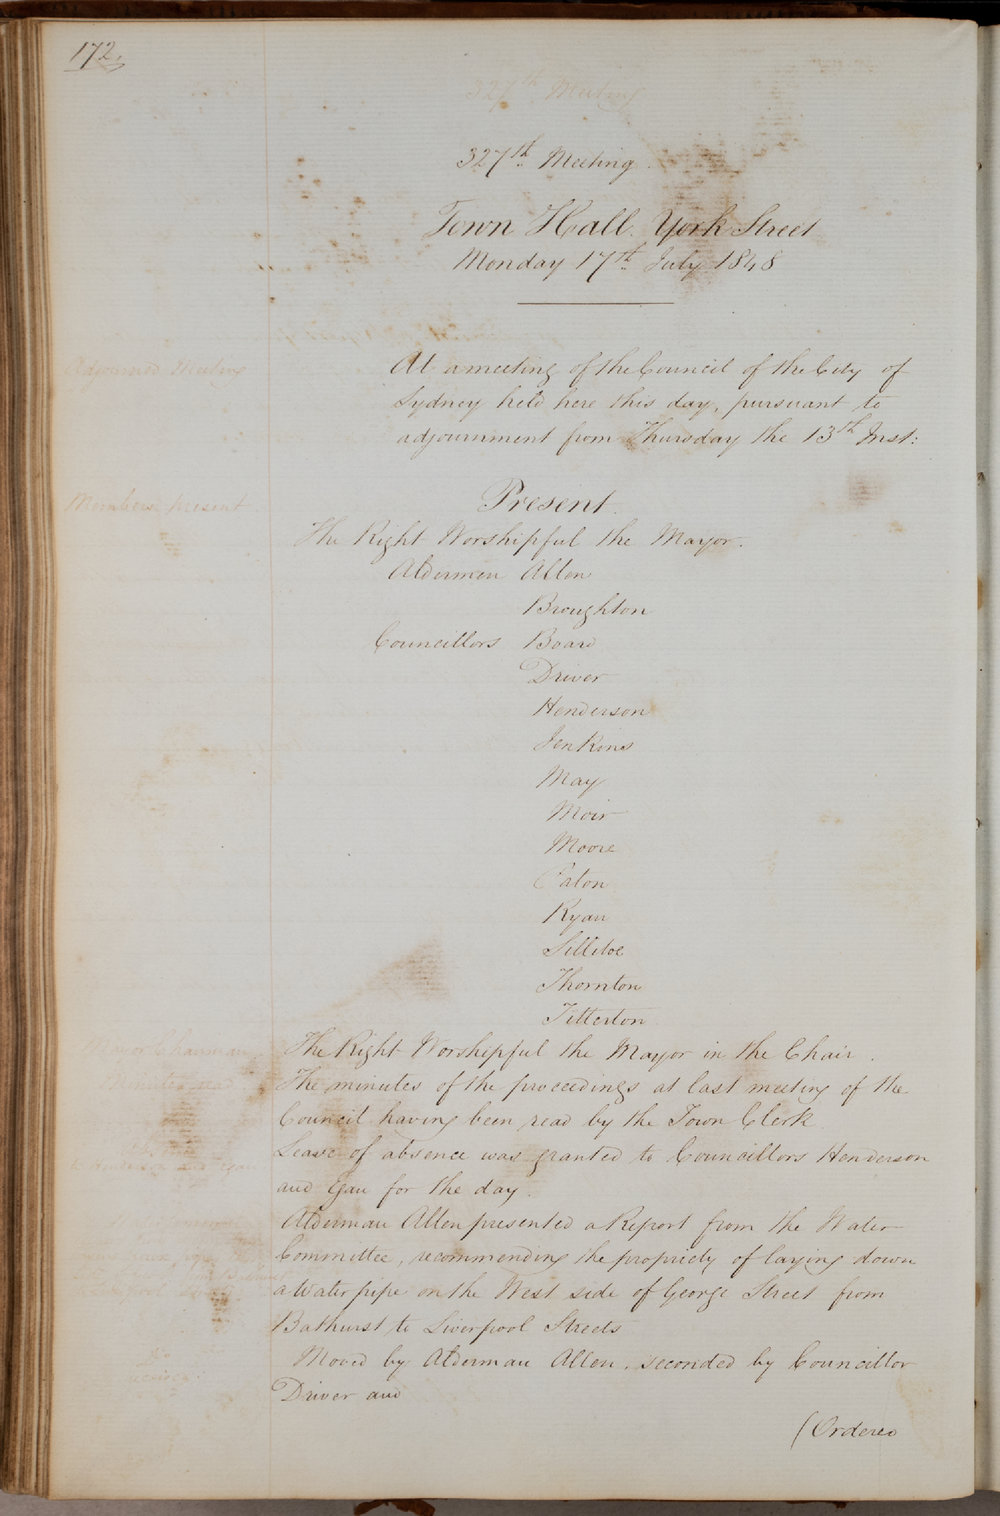 172.
327th Meeting
327th Meeting.
Town Hall. York Street
Monday 17th July 1848
Adjourned Meeting
At a meeting of the Council of the City of
Sydney held here this day, pursuant to
adjournment from Thursday the 13th Inst:
Members present
Present.
The Right Worshipful the Mayor.
Aldermen Allen
Broughton
Councillors Board
Driver
Henderson
Jenkins
May
Moir
Moore
Paton
Ryan
Sillitoe
Thornton
Titterton
Mayor Chairman
The Right Worshipful the Mayor in the Chair.
Minutes read
The minutes of the proceedings at last meeting of the
Council having been read by the Town Clerk
Leave of absence was granted to Councillors Henderson
to Henderson and Egan
and Egan for the day.
Alderman Allen presented a Report from the Water
Committee, recommending the propriety of laying down
a Water pipe on the West side of George Street from
Bathurst to Liverpool Streets
Moved by Alderman Allen, seconded by Councillor
Driver and
(Ordered